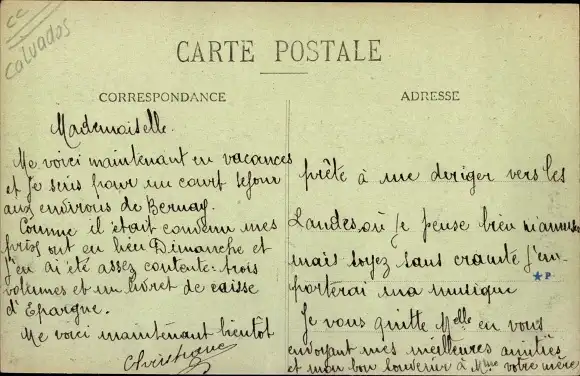 cc
Calvados
CARTE POSTALE
CORRESPONDANCE
ADRESSE
Mademoiselle.
Me voici maintenant en vacances
et je suis pour un court séjour
aux environs de Bernay.
Comme il était convenu mes
prix ont eu lieu Dimanche et
j'en ai été assez contente. trois
volumes et un livret de caisse
d'Epargne.
Me voici maintenant bientôt
prête à me diriger vers les
Landes, où je pense bien m'amuser
mais soyez sans crainte j'em-
porterai ma musique
Je vous quitte Melle en vous
envoyant mes meilleures amitiés
et mon bon souvenir à Mme votre mère
Christiane
★P